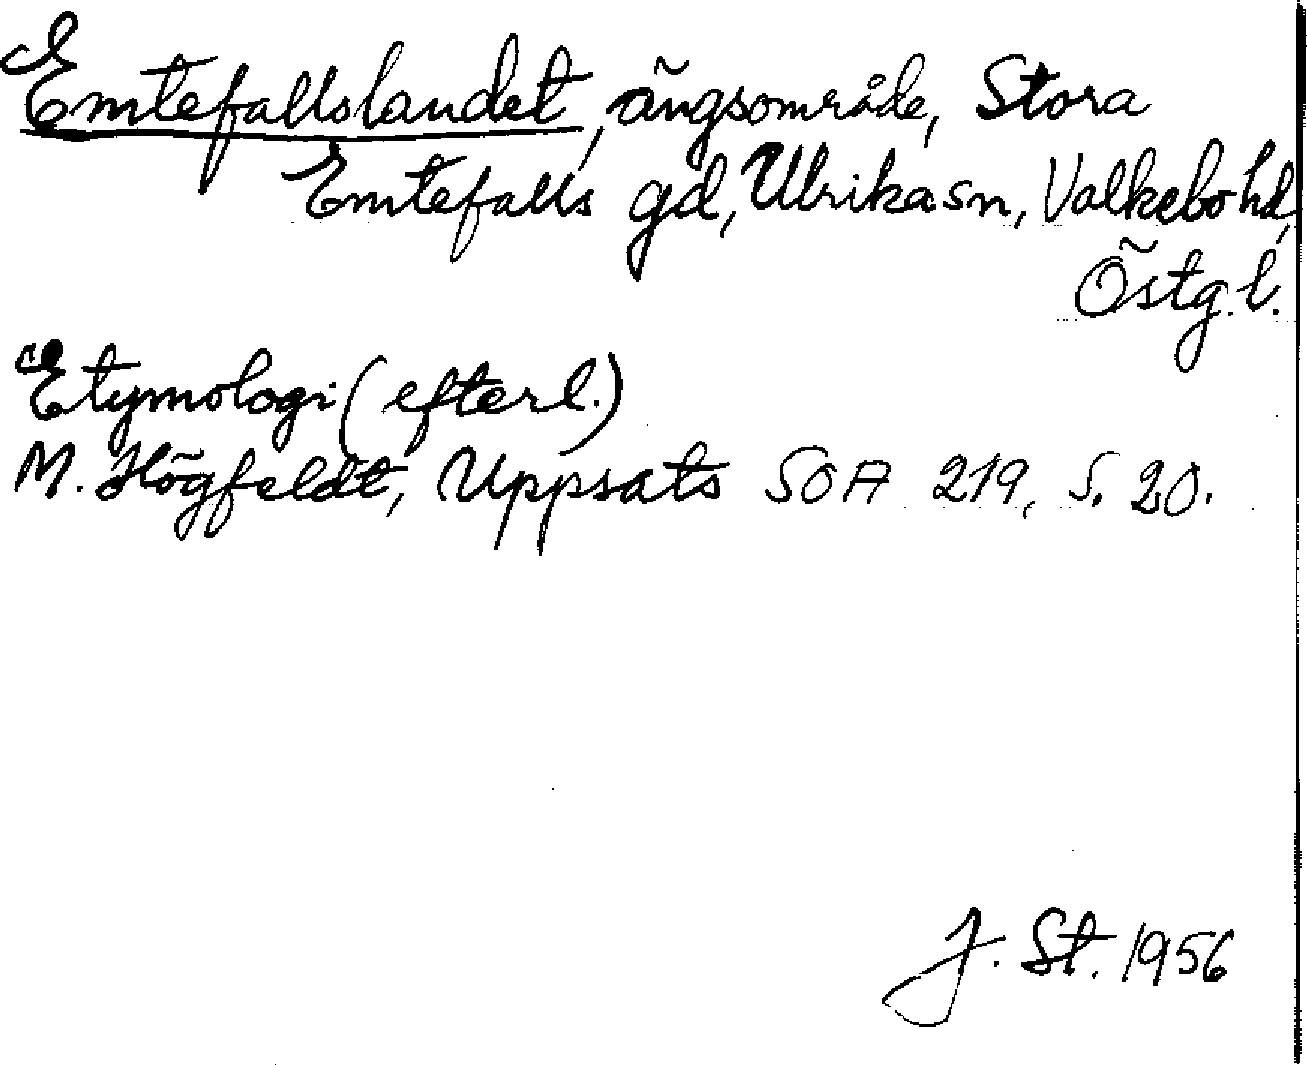 Emtefallslandet, ängsområde, Stora
Emtefalls gd, Ulrika sn, Valkebo hd,
Östg. l.
Etymologi (efterl.)
M. Högfeldt, Uppsats SOA 219, S. 20.
J. St. 1956